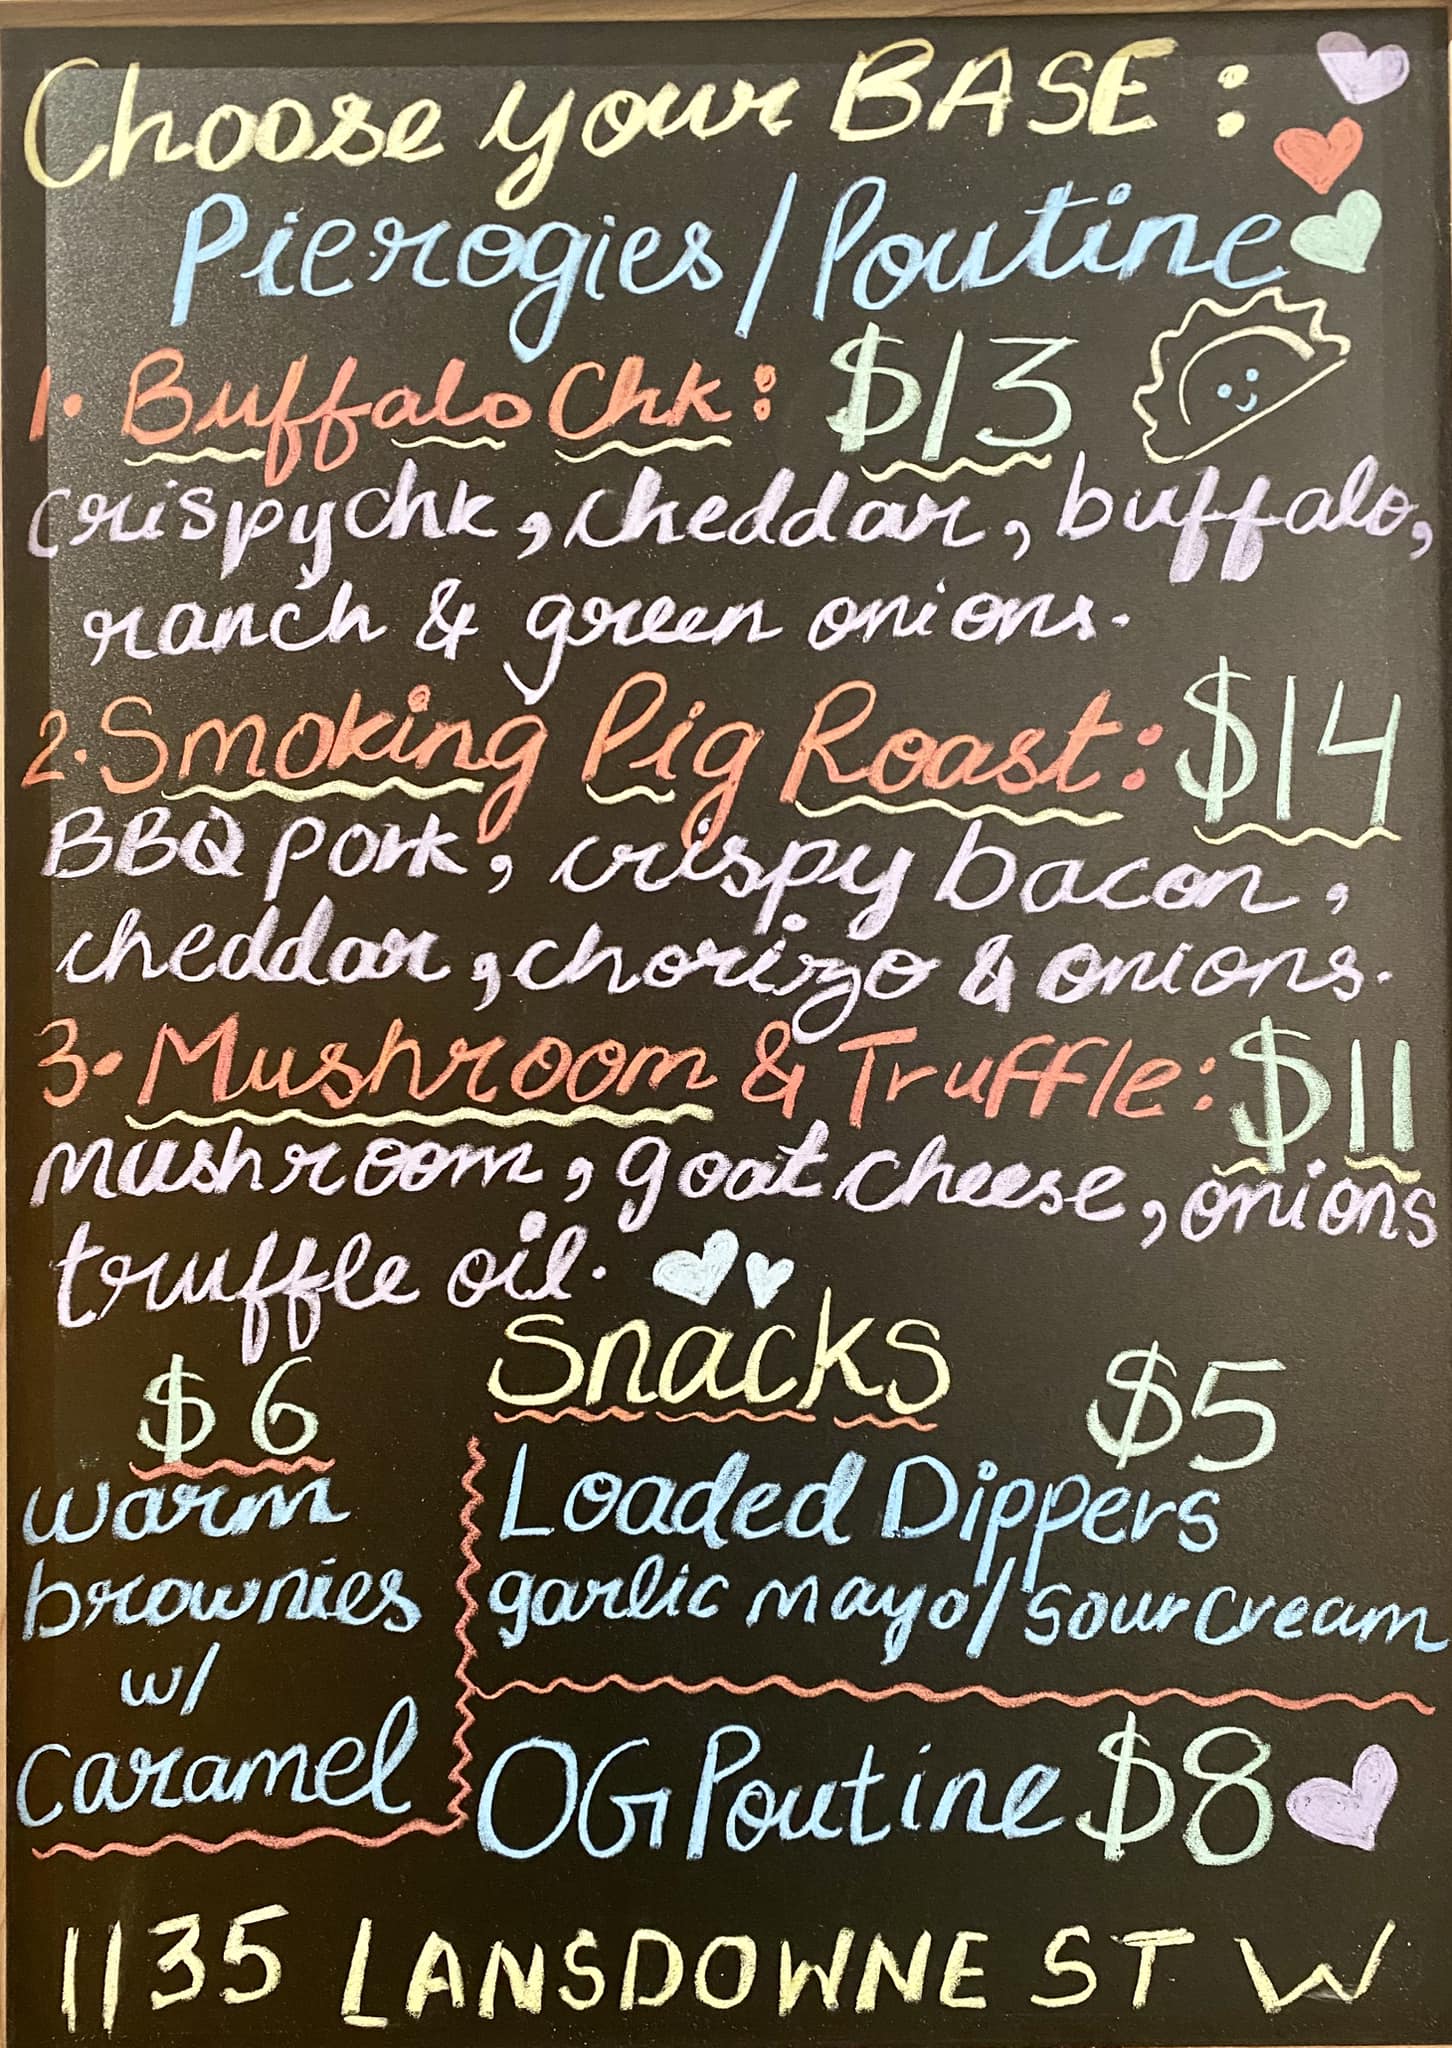 Choose your BASE:
Pierogies / Poutine
1. Buffalo Chk: $13
Crispy chk, cheddar, buffalo,
ranch & green onions.
2. Smoking Pig Roast: $14
BBQ pork, crispy bacon,
cheddar, chorizo & onions.
3. Mushroom & Truffle: $11
mushroom, goat cheese, onions
truffle oil.
Snacks
$6
warm
brownies
w/
Caramel
$5
Loaded Dippers
garlic mayo/sour cream
OG Poutine $8
1135 LANSDOWNE ST W